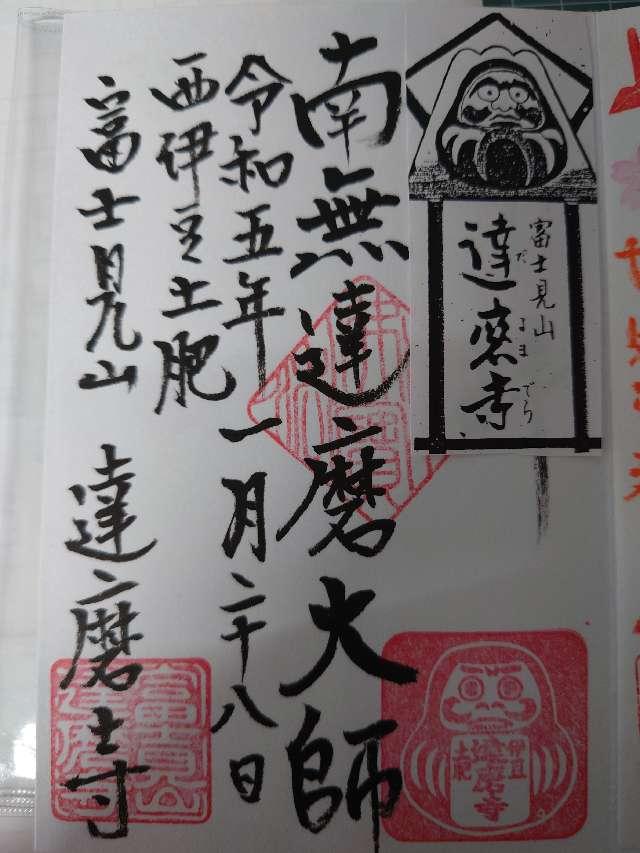 富士見山
達磨寺
だるまでら
南無達磨大師
令和五年一月二十八日
西伊豆土肥
富士見山 達磨寺
伊豆
土肥
達磨寺